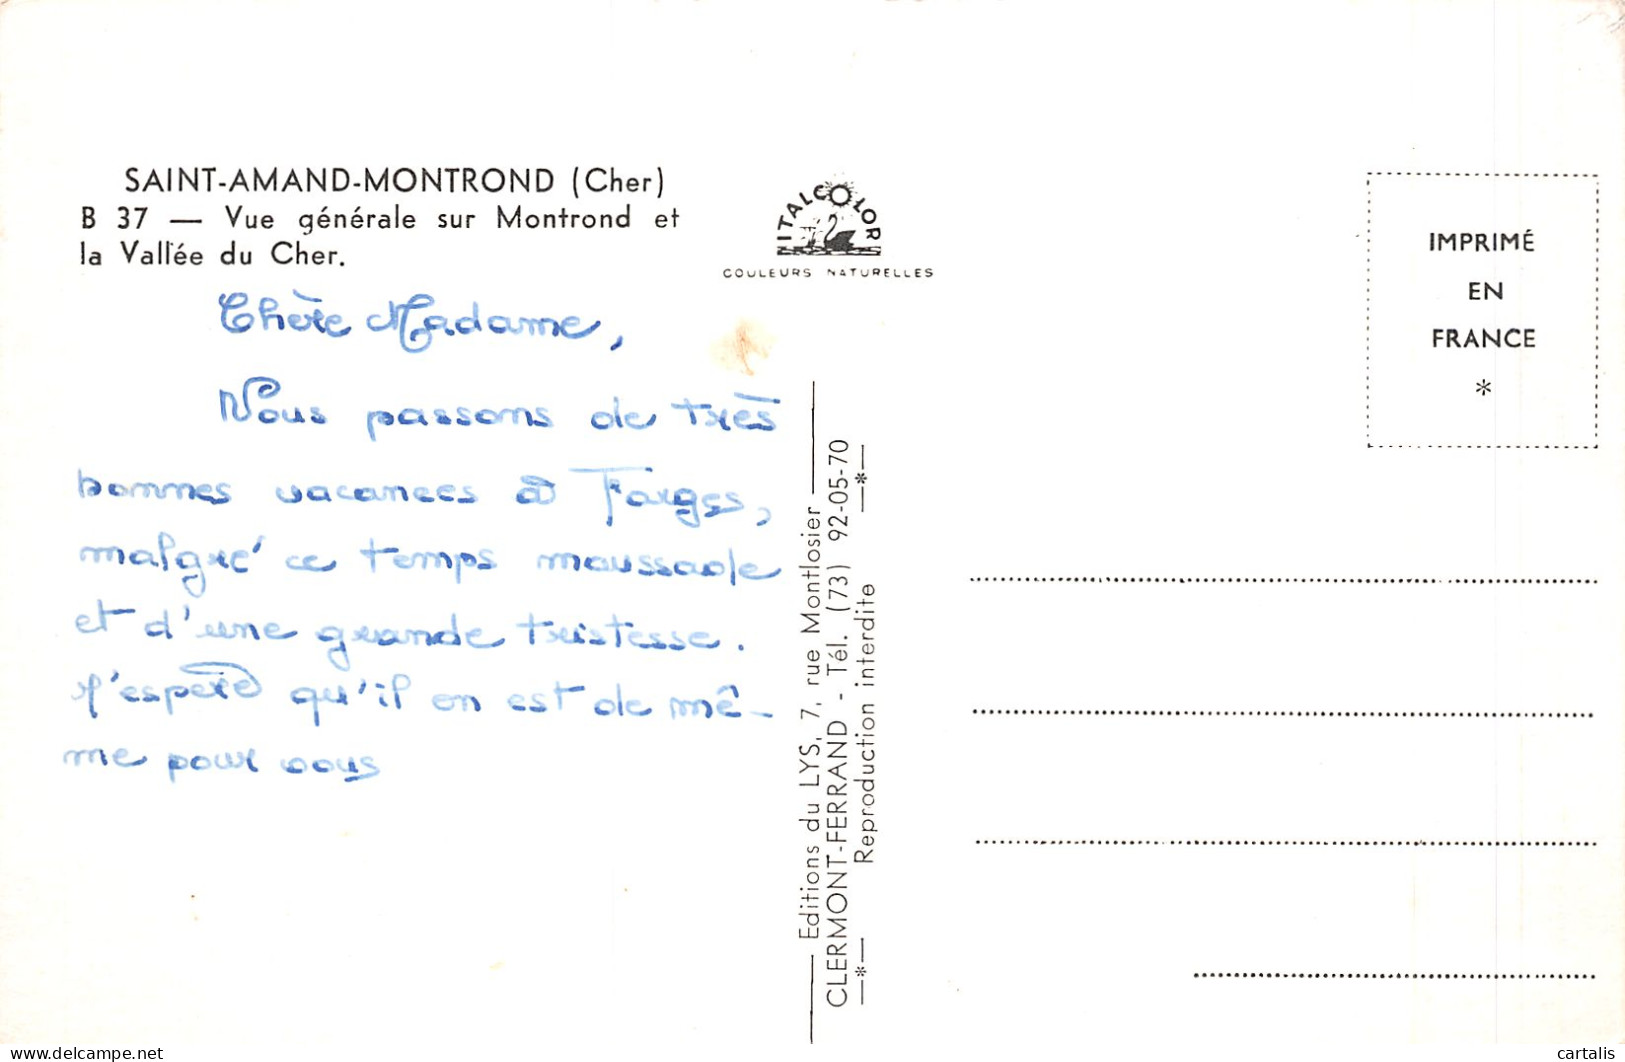 SAINT-AMAND-MONTROND (Cher)
B 37 — Vue générale sur Montrond et
la Vallée du Cher.
ITALCOLOR
COULEURS NATURELLES
IMPRIMÉ
EN
FRANCE
*
Chère Madame,
Nous passons de très
bonnes vacances à Farges,
malgré ce temps maussade
et d'une grande tristesse.
J'espère qu'il en est de mê-
me pour vous
Editions du LYS, 7, rue Montlosier
CLERMONT-FERRAND - Tél. (73) 92-05-70
—*— Reproduction interdite —*—
www.delcampe.net
cartalis